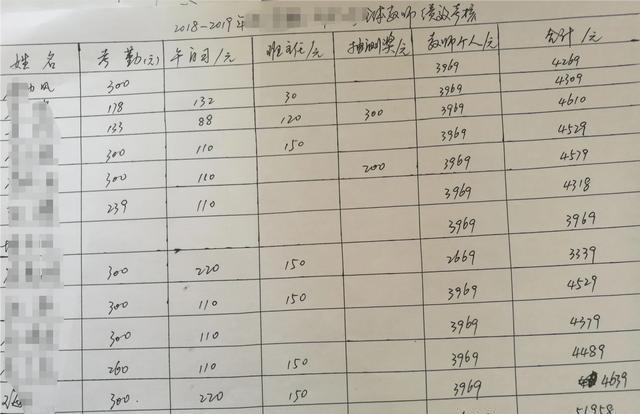 2018-2019年 教师绩效考核
姓名 考勤(元) 午自习/元 班主任/元 抽测奖/元 教师个人/元 合计/元
风 300 3969 4269
178 132 30 3969 4309
133 88 120 300 3969 4610
300 110 150 3969 4529
300 110 200 3969 4579
239 110 3969 4318
3969 3969
300 220 150 2669 3339
300 110 150 3969 4529
300 110 3969 4379
260 110 150 3969 4489
300. 220 150 3969 4639
51958